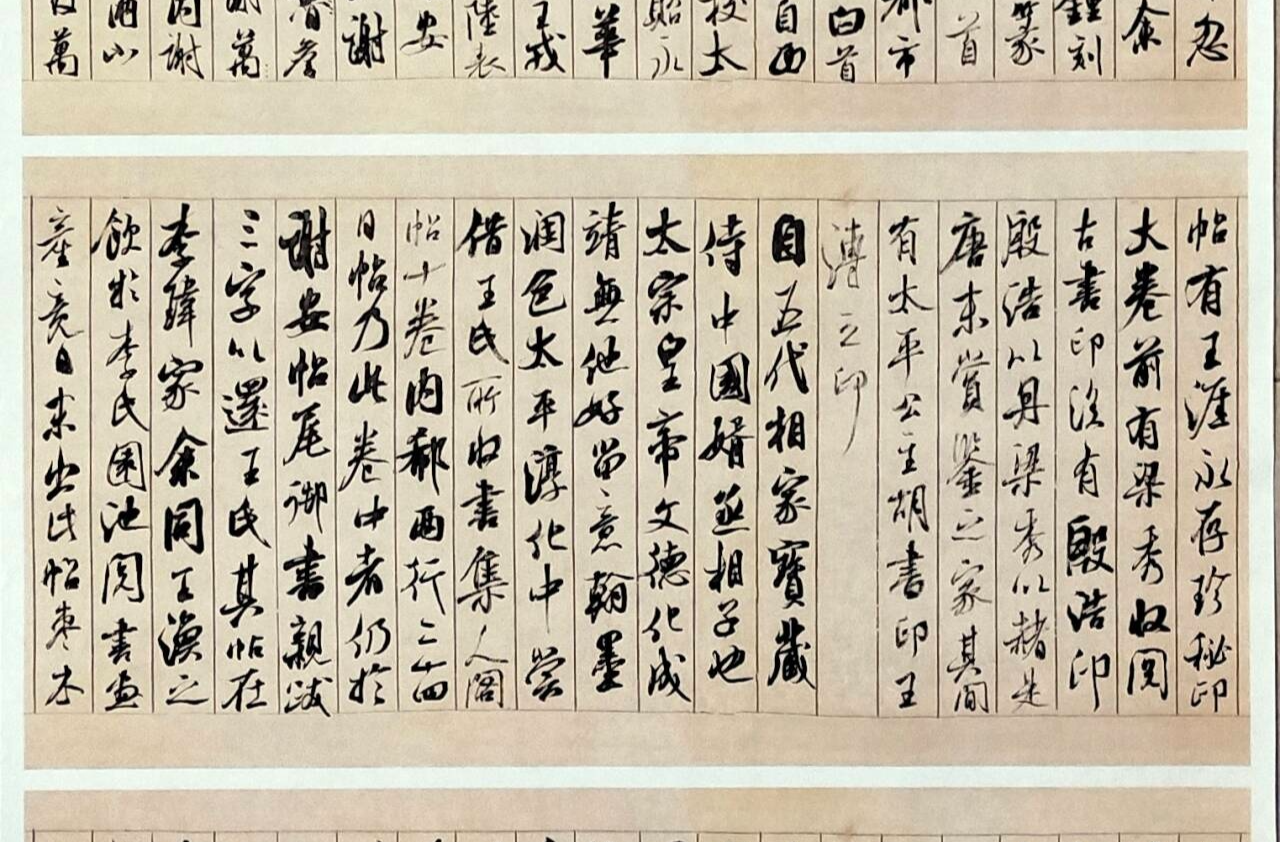 忍
余
鍾刻
篆
首
都市
白首
自西
校太
貽永
華
王戎
陸表
安
謝
謝萬
内謝
山
萬
帖有王涯永存珍秘印
大卷前有梁秀收閱
古書印後有殷浩印
殷浩以丹梁秀以赭是
唐末賞鑒之家其間
有太平公主胡書印王
溥之印
自五代相家寶藏
侍中國婿丞相子也
太宗皇帝文德化成
靖無他好留意翰墨
潤色太平淳化中嘗
借王氏所收書集入閣
帖十卷内郗兩行二十四
日帖乃此卷中者仍於
謝安帖尾御書親跋
三字以還王氏其帖在
李瑋家余同王渙之
飲於李氏園池閱書畫
竟日末出此帖棗木